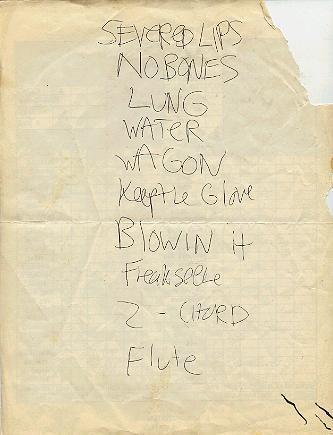 SEVERED LIPS
NO BONES
LUNG
WATER
WAGON
Keep the Glove
Blowin it
Freak scene
2 - CHORD
Flute